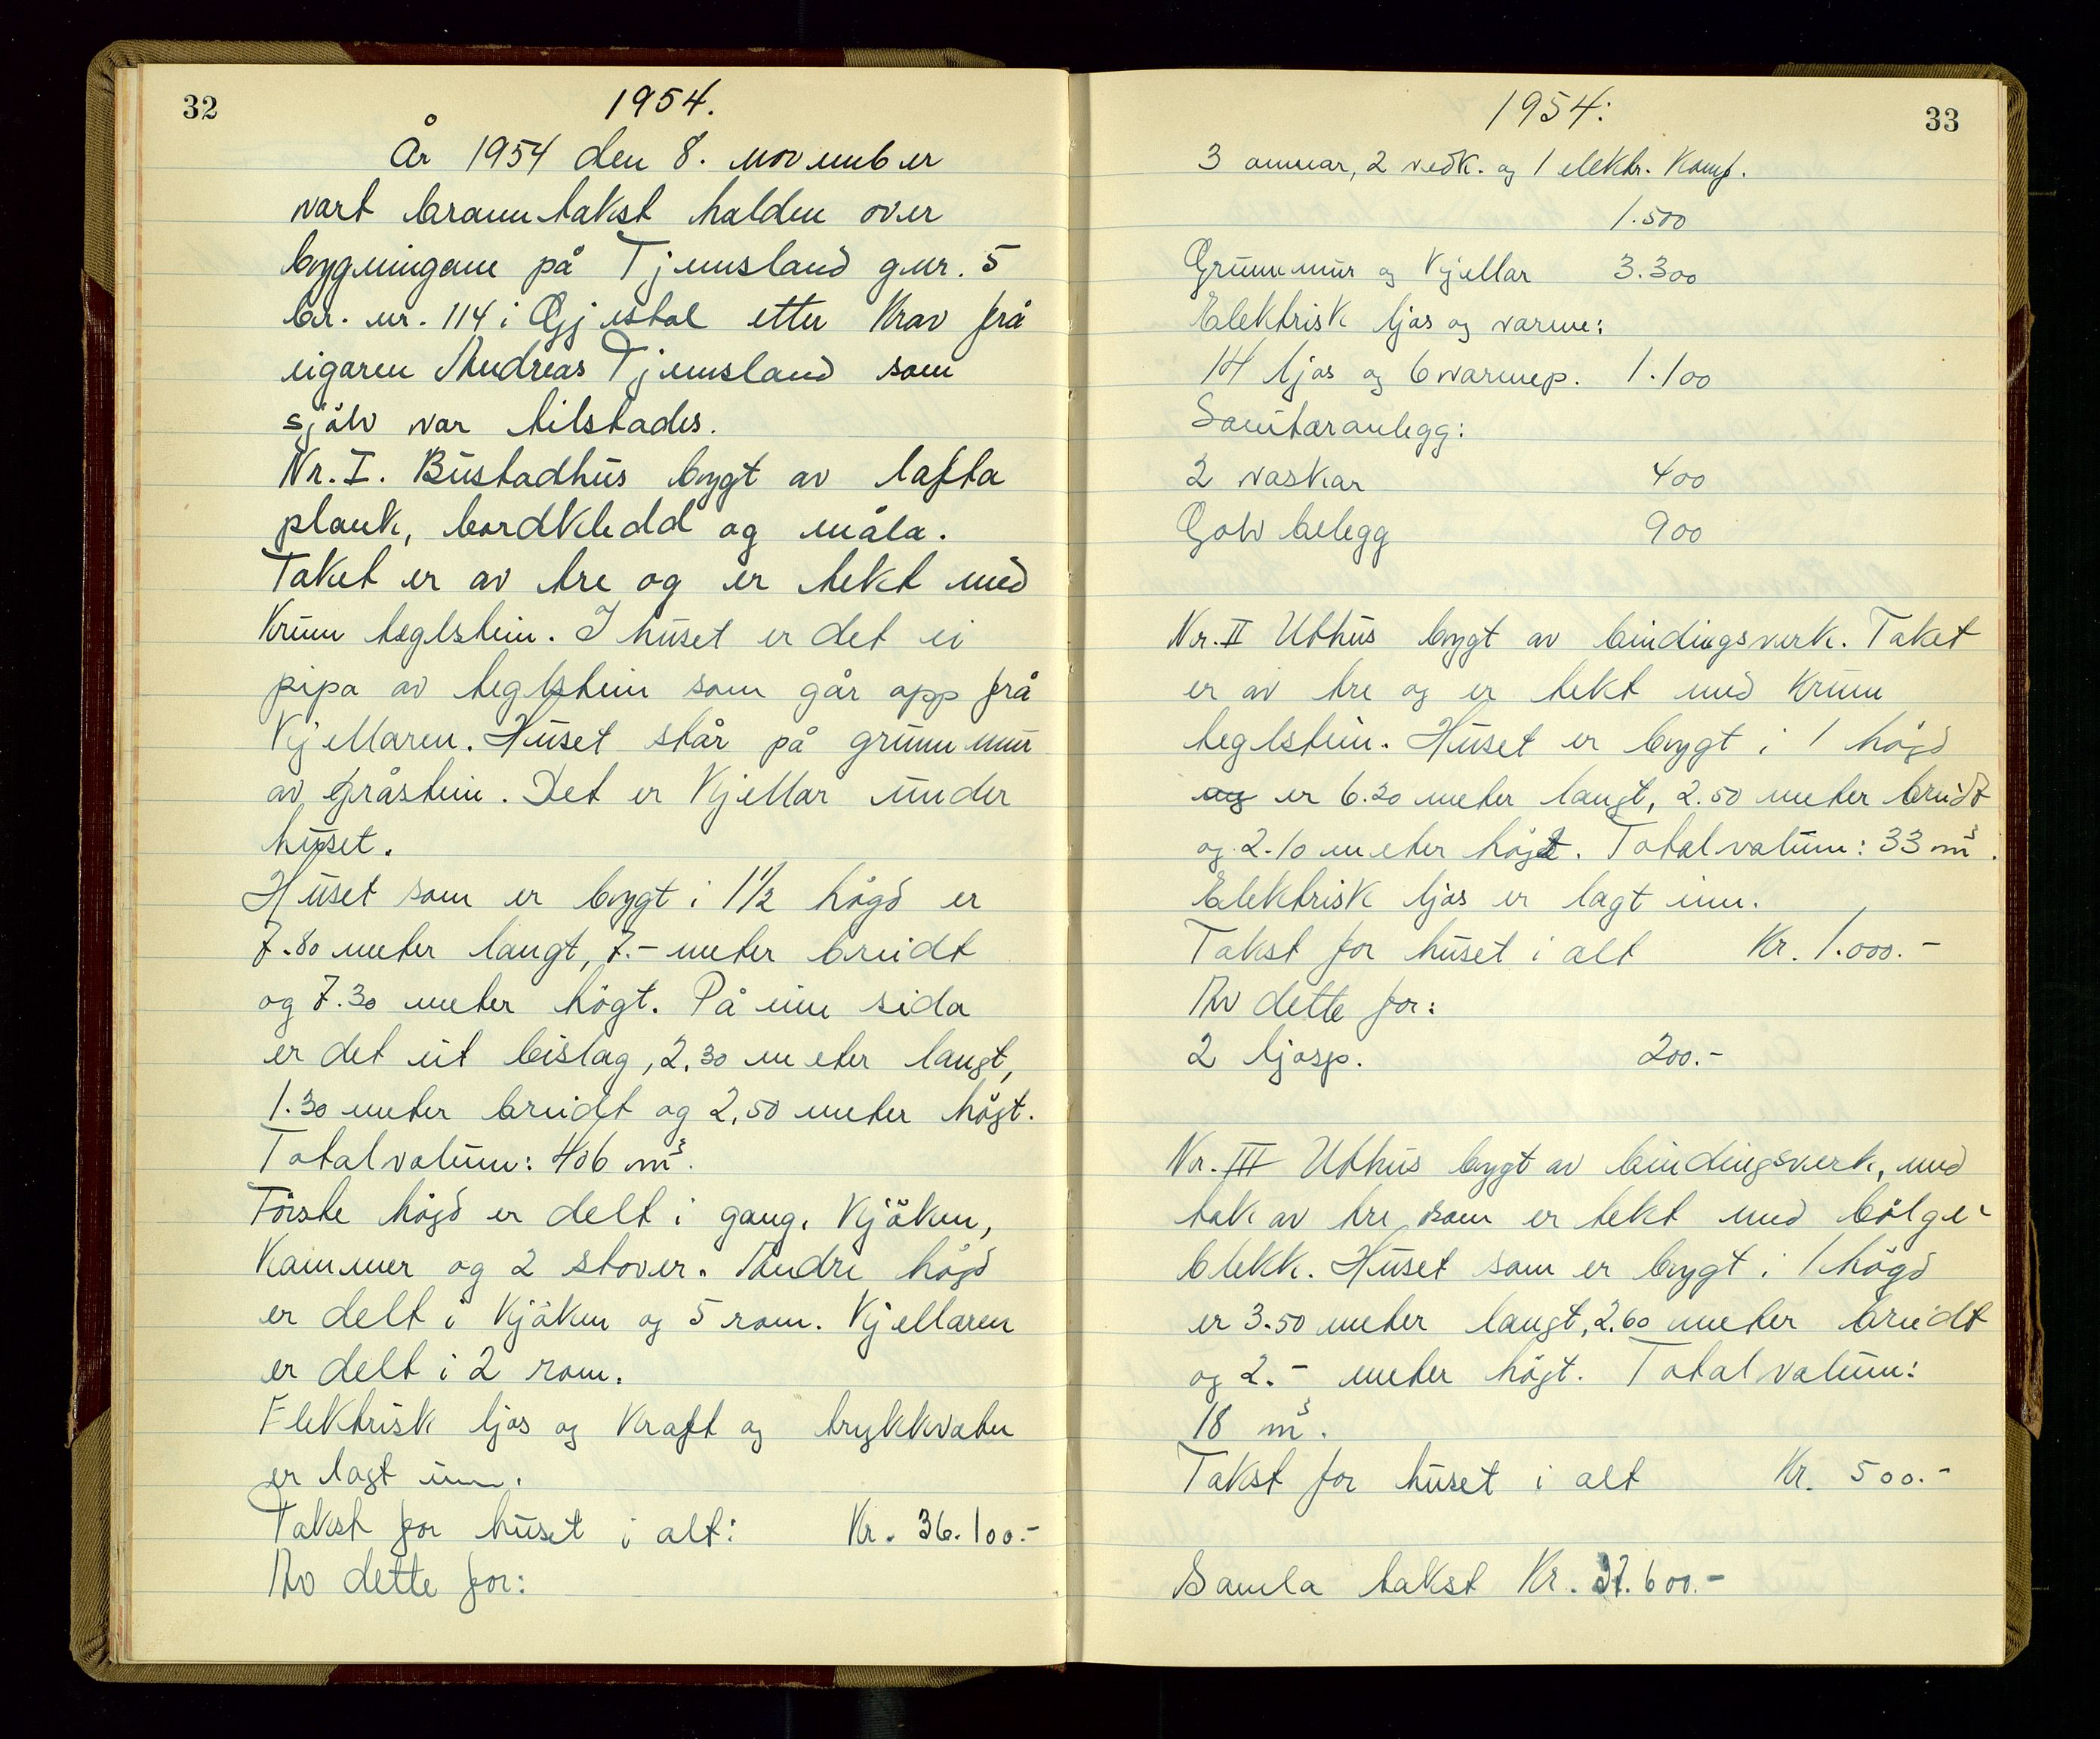 32
1954.
År 1954 den 8. november
vart branntakst halden over
bygningane på Tjemsland gnr. 5
br. nr. 114 i Gjestal etter krav frå
eigaren Andreas Tjemsland som
sjölv var tilstades.
Nr. I. Bustadhus bygt av lafta
plank, bordkledd og måla.
Taket er av tre og er tekt med
krum teglstein. I huset er det ei
pipa av teglstein som går opp frå
kjellaren. Huset står på grunnmur
av gråstein. Det er kjellar under
huset.
Huset som er bygt i 1 1/2 högd er
7.80 meter langt, 7.- meter breidt
og 7.30 meter högt. På ein sida
er det eit bislag, 2,30 meter langt,
1.30 meter breidt og 2,50 meter högt.
Totalvolum: 406 m³.
Förste högd er delt i gang, kjöken,
kammer og 2 stover. Andre högd
er delt i kjöken og 5 rom. Kjellaren
er delt i 2 rom.
Elektrisk ljos og kraft og trykkvatn
er lagt inn.
Takst for huset i alt: Kr. 36.100.-
Av dette for:
33
1954:
3 omnar, 2 vedk. og 1 elektr. komf.
1.500
Grunnmur og kjellar 3.300
Elektrisk ljos og varme:
14 ljos og 6 varmep. 1.100
Sanitæranlegg:
2 vaskar 400
Golvbelegg 900
Nr. II Uthus bygt av bindingsverk. Taket
er av tre og er tekt med krum
teglstein. Huset er bygt i 1 högd
og er 6.30 meter langt, 2.50 meter breidt
og 2.10 meter högt. Totalvolum: 33 m³.
Elektrisk ljos er lagt inn.
Takst for huset i alt Kr. 1.000.-
Av dette for:
2 ljosp. 200.-
Nr. III Uthus bygt av bindingsverk, med
tak av tre som er tekt med bölge-
blekk. Huset som er bygt i 1 högd
er 3.50 meter langt, 2.60 meter breidt
og 2.- meter högt. Totalvolum:
18 m³.
Takst for huset i alt Kr. 500.-
Samla takst Kr. 37.600.-